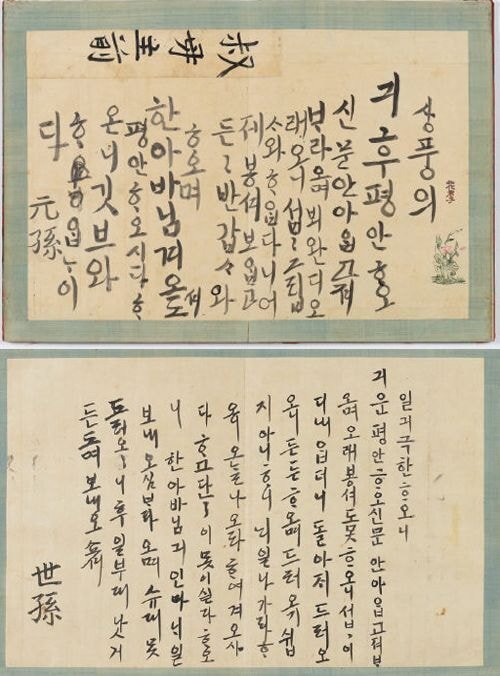 叔母主前
상풍의
긔후평안ᄒᆞ오
신문안아ᄋᆞᆸ고져
ᄇᆞ라오며 뵈완디오
래오니 섭〻그립
ᄉᆞ와ᄒᆞᄋᆞᆸ다니어
제봉셔보ᄋᆞᆸ고
든〻반갑ᄉᆞ와
ᄒᆞ오며
한아바님겨오셔
평안ᄒᆞ오시다ᄒᆞ
온니깃브와
ᄒᆞᄋᆞᆸᄂᆞ이
다 元孫
일긔극한ᄒᆞ오니
긔운평안ᄒᆞ오신문안아ᄋᆞᆸ고져ᄇᆞ
오며오래봉셔도못ᄒᆞ오니섭〻이
디내ᄋᆞᆸ더니돌아지드러오
오니든든ᄒᆞ오며드러오기쉽
지아니ᄒᆞ니ᄂᆡ일나가라ᄒᆞ
오ᄂᆞᆯ나오라ᄒᆞ여겨오사
다ᄒᆞ고단〻이못이실다ᄒᆞ오
니 한아바님긔인마ᄂᆡ일
보내오심ᄇᆞ라오며슈대못
드려오니후일부대낫거
든 보내오쇼셔
世孫